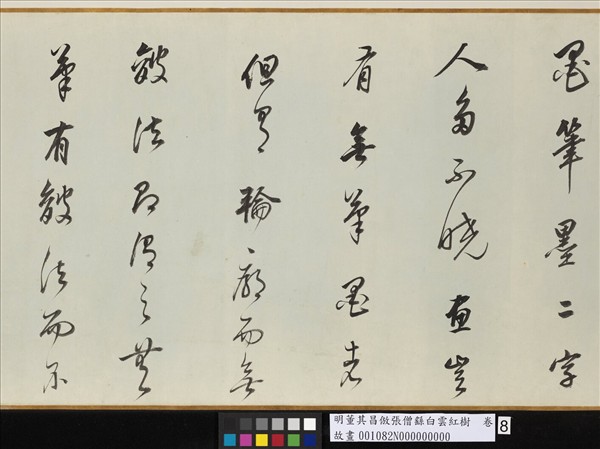 墨筆墨二字
人多不曉畫豈
有無筆墨者
但有輪廓而無
皴法即謂之無
筆有皴法而不
明董其昌倣張僧繇白雲紅樹 卷
故畫 001082N000000000
8